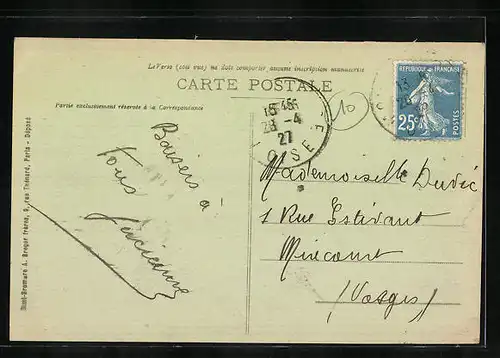 Le Verso (côté vue) ne doit comporter aucune inscription manuscrite
CARTE POSTALE
Partie exclusivement réservée à la Correspondance
RÉPUBLIQUE FRANÇAISE
25c
POSTES
15 45
28 - 4
27
OISE
10
Baisers à
tous !
Lucienne
Mademoiselle Duvic
1 Rue Estivant
Mirecourt
(Vosges)
Mimi-Bromure A. Breger frères, 9, rue Thénard, Paris - Déposé